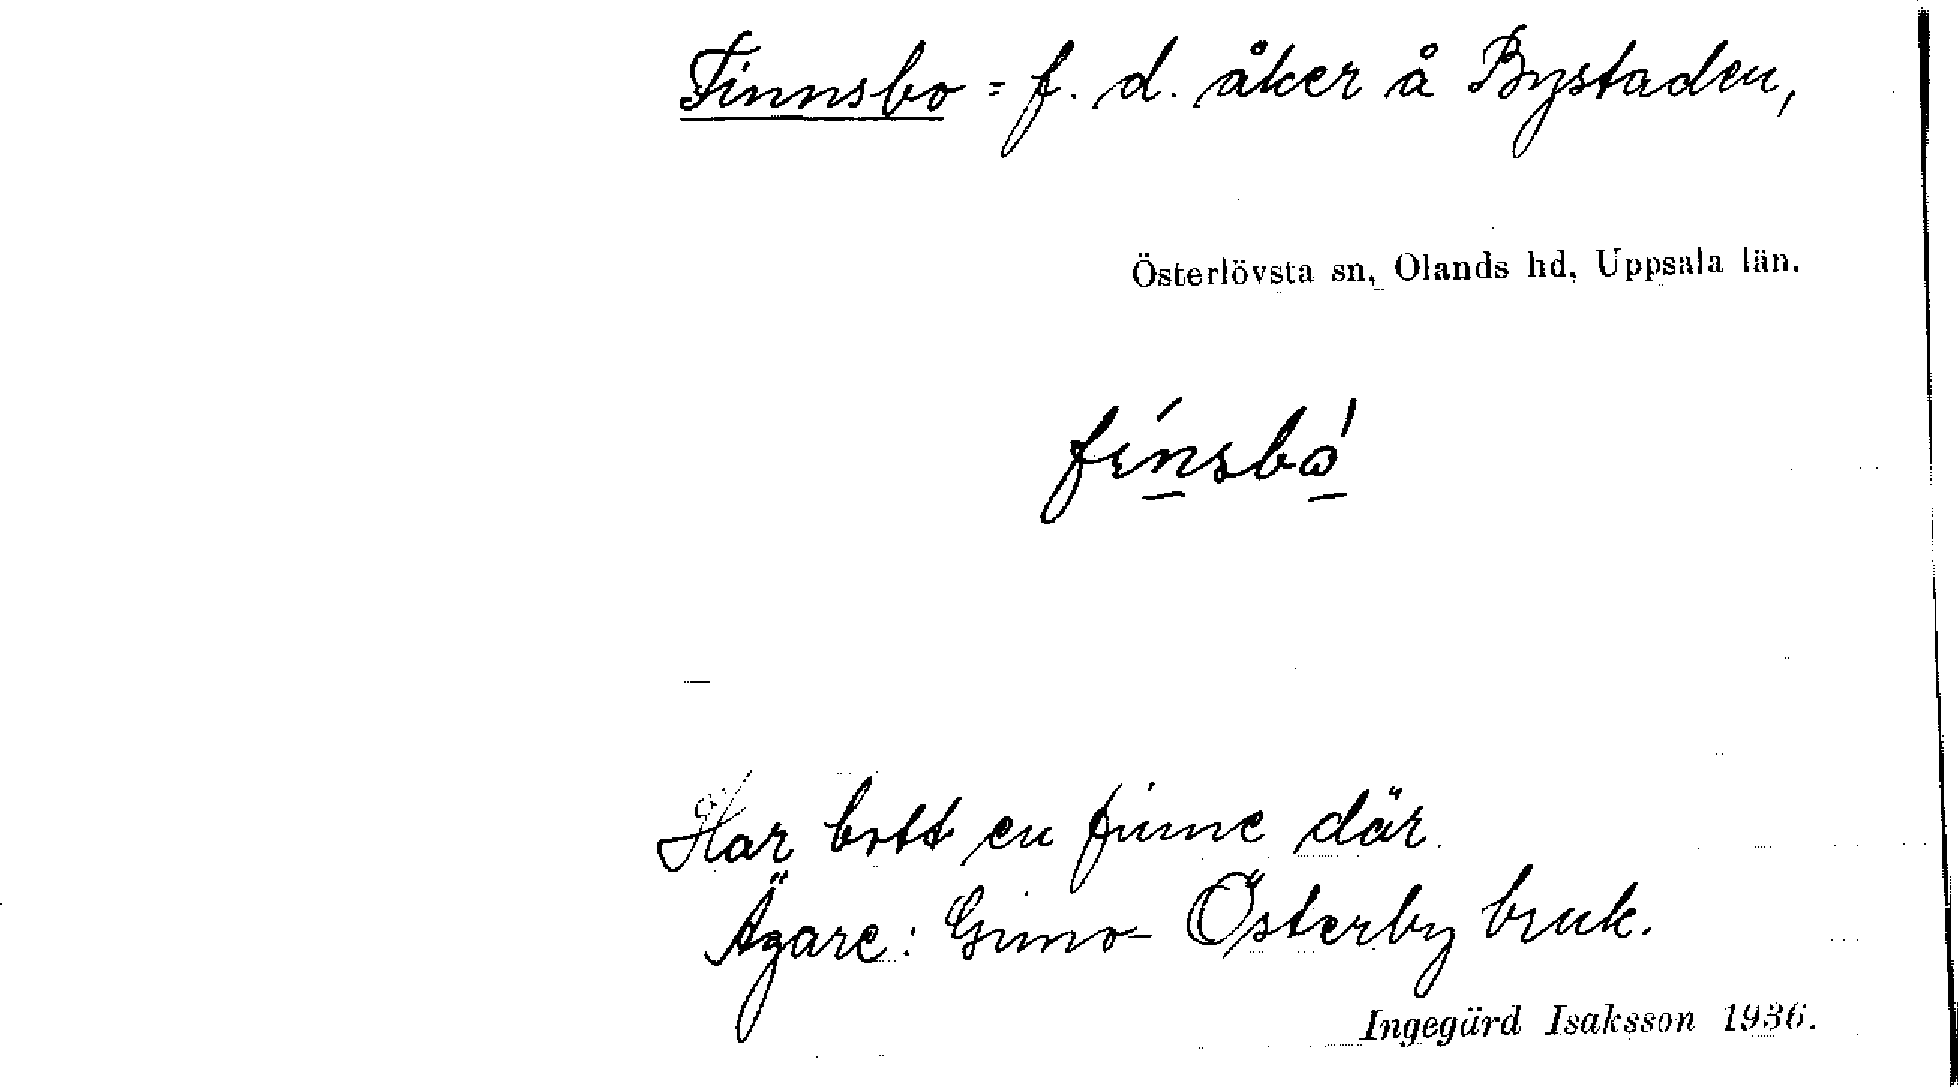 Finnsbo = f. d. åker å Bystaden,
Österlövsta sn, Olands hd, Uppsala län.
Har bott en finne där.
Ägare: Gimo- Österby bruk.
Ingegärd Isaksson 1936.